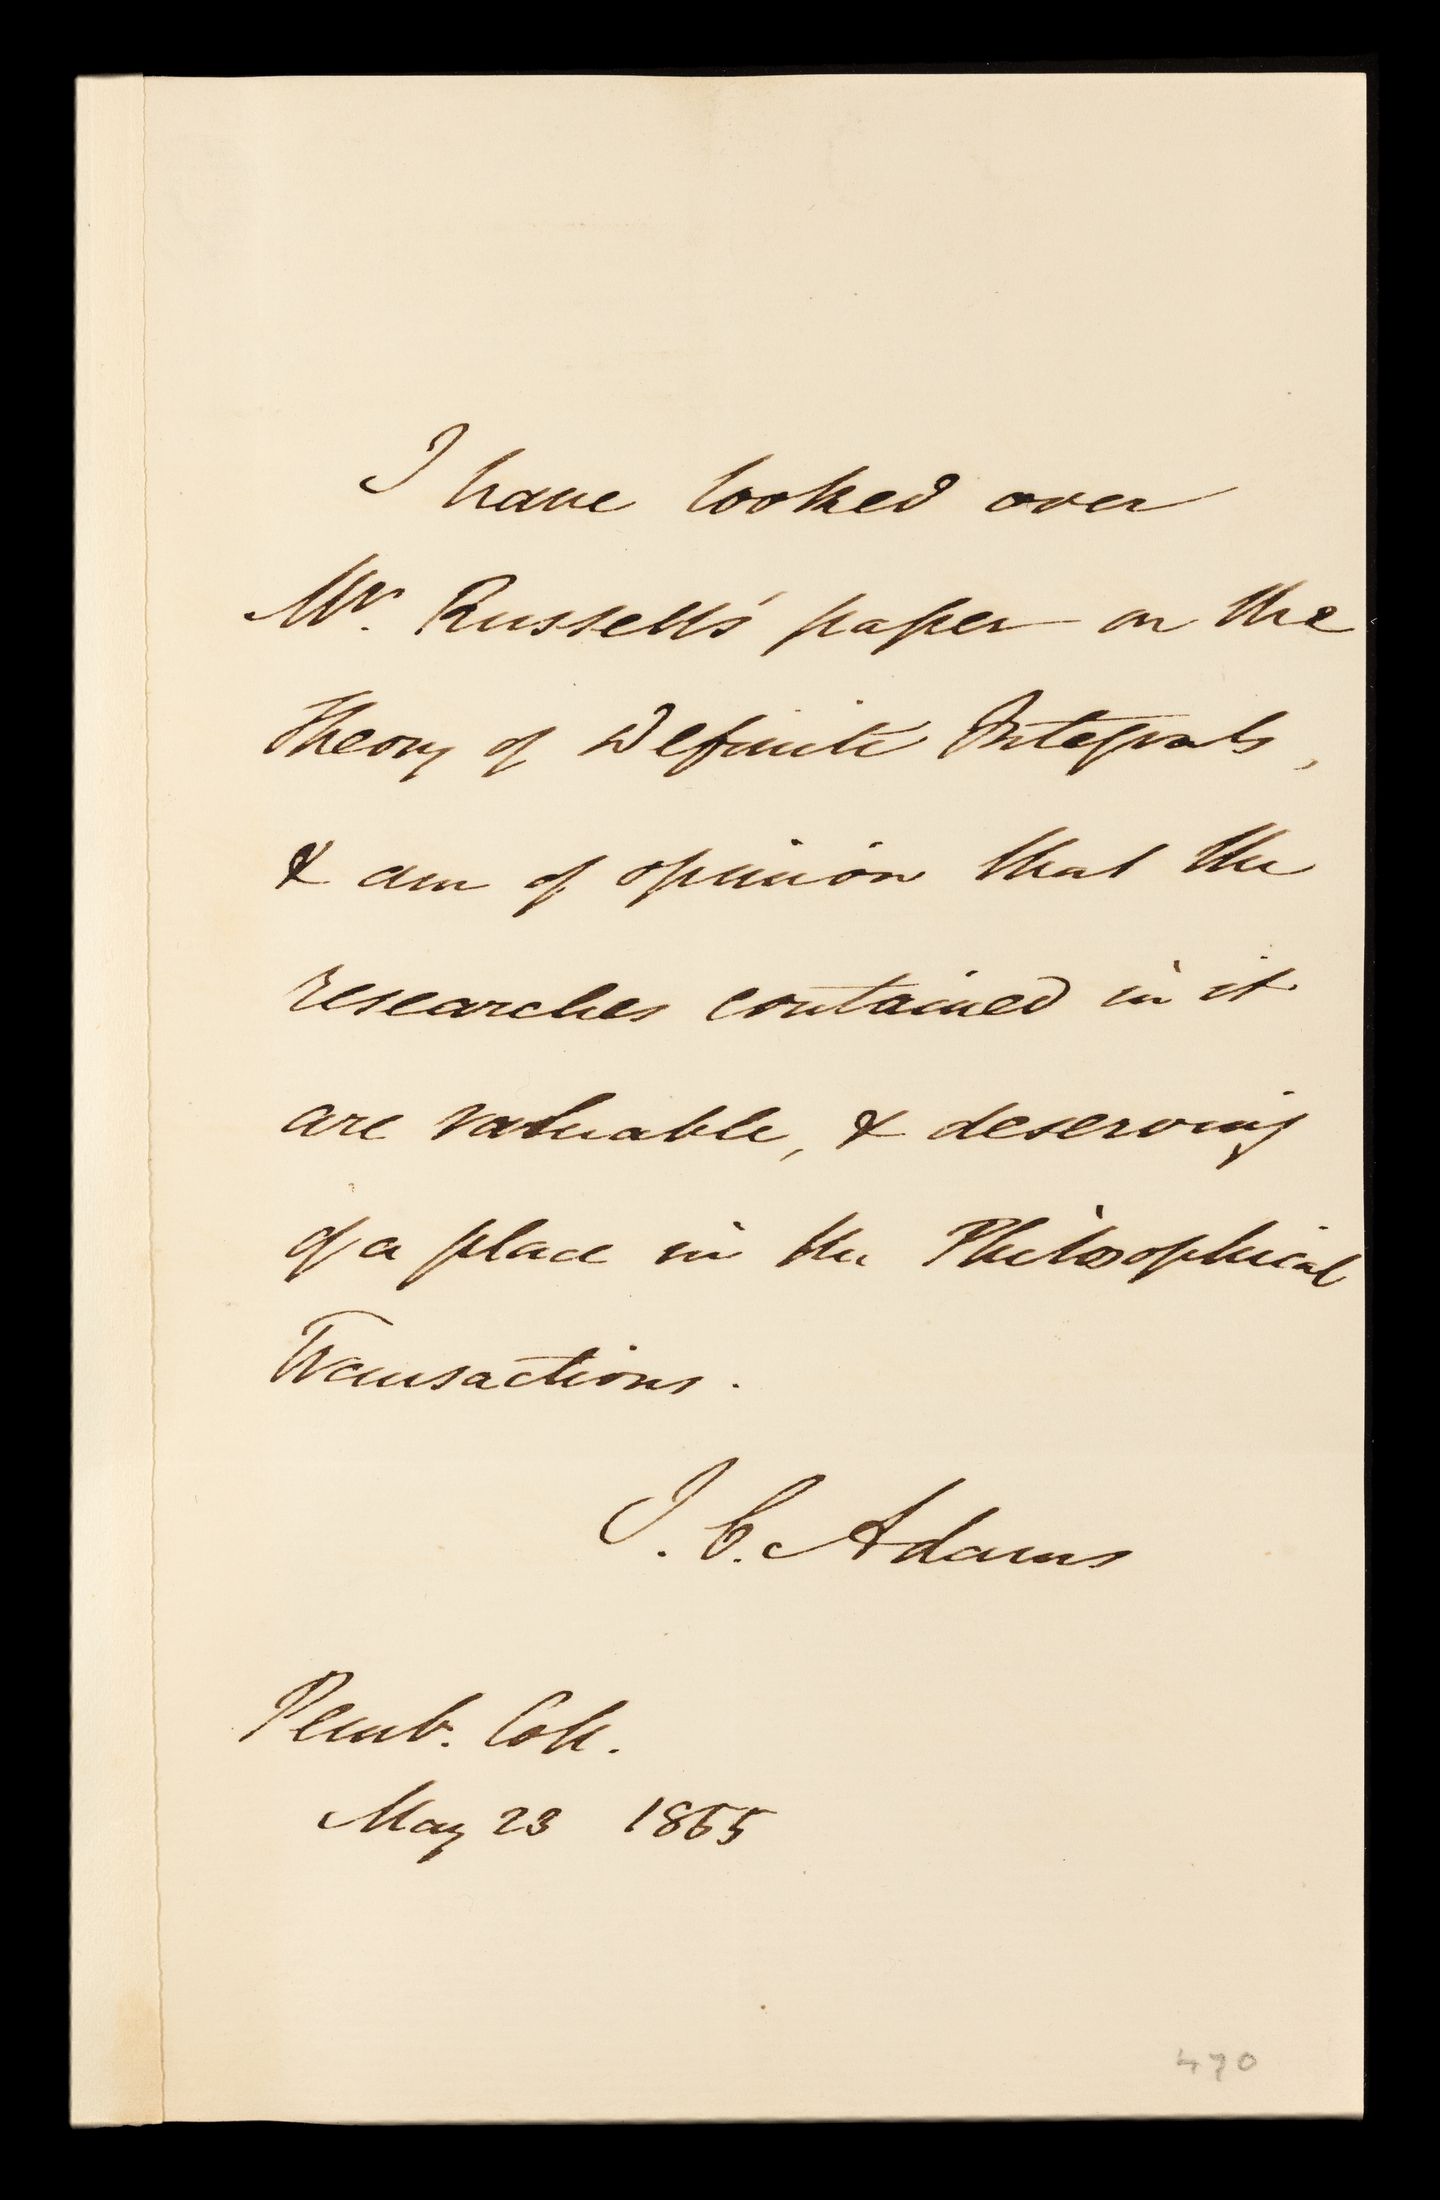 I have looked over
Mr. Russell's paper on the
Theory of Definite Integrals,
& am of opinion that the
researches contained in it
are valuable, & deserving
of a place in the Philosophical
Transactions.
J. C. Adams
Pemb. Coll.
May 23 1855
470